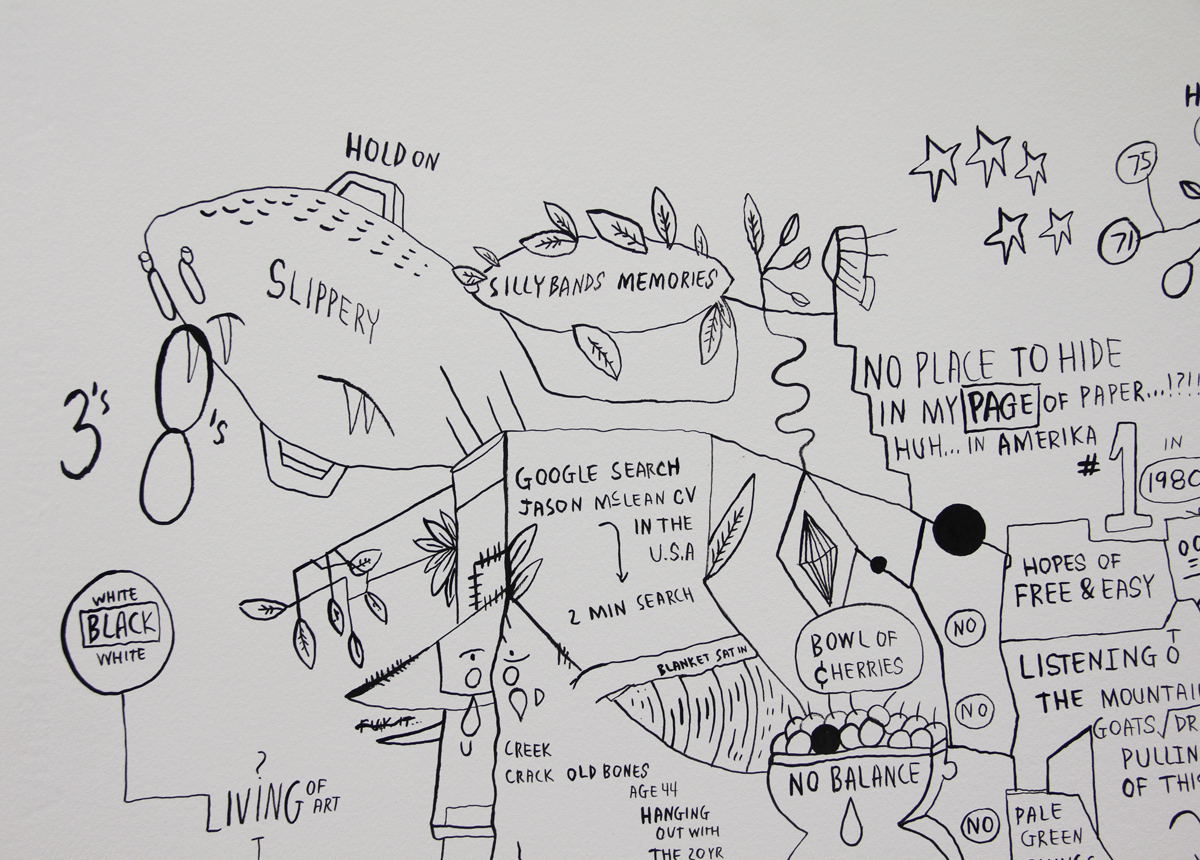 HOLD ON
75
71
SLIPPERY
SILLYBANDS MEMORIES
3's
's
NO PLACE TO HIDE
IN MY PAGE OF PAPER...!?!!
HUH... IN AMERIKA
#1
IN
1980
GOOGLE SEARCH
JASON McLEAN CV
IN THE
U.S.A
2 MIN SEARCH
HOPES OF
FREE & EASY
WHITE
BLACK
WHITE
NO
BOWL OF
¢HERRIES
BLANKET SAT IN
LISTENING TO
THE MOUNTAI
GOATS
PULLIN
OF THIS
NO
FUK IT...
CREEK
CRACK OLD BONES
AGE 44
HANGING
OUT WITH
THE 20YR
NO BALANCE
NO
PALE
GREEN
?
LIVING OF
ART